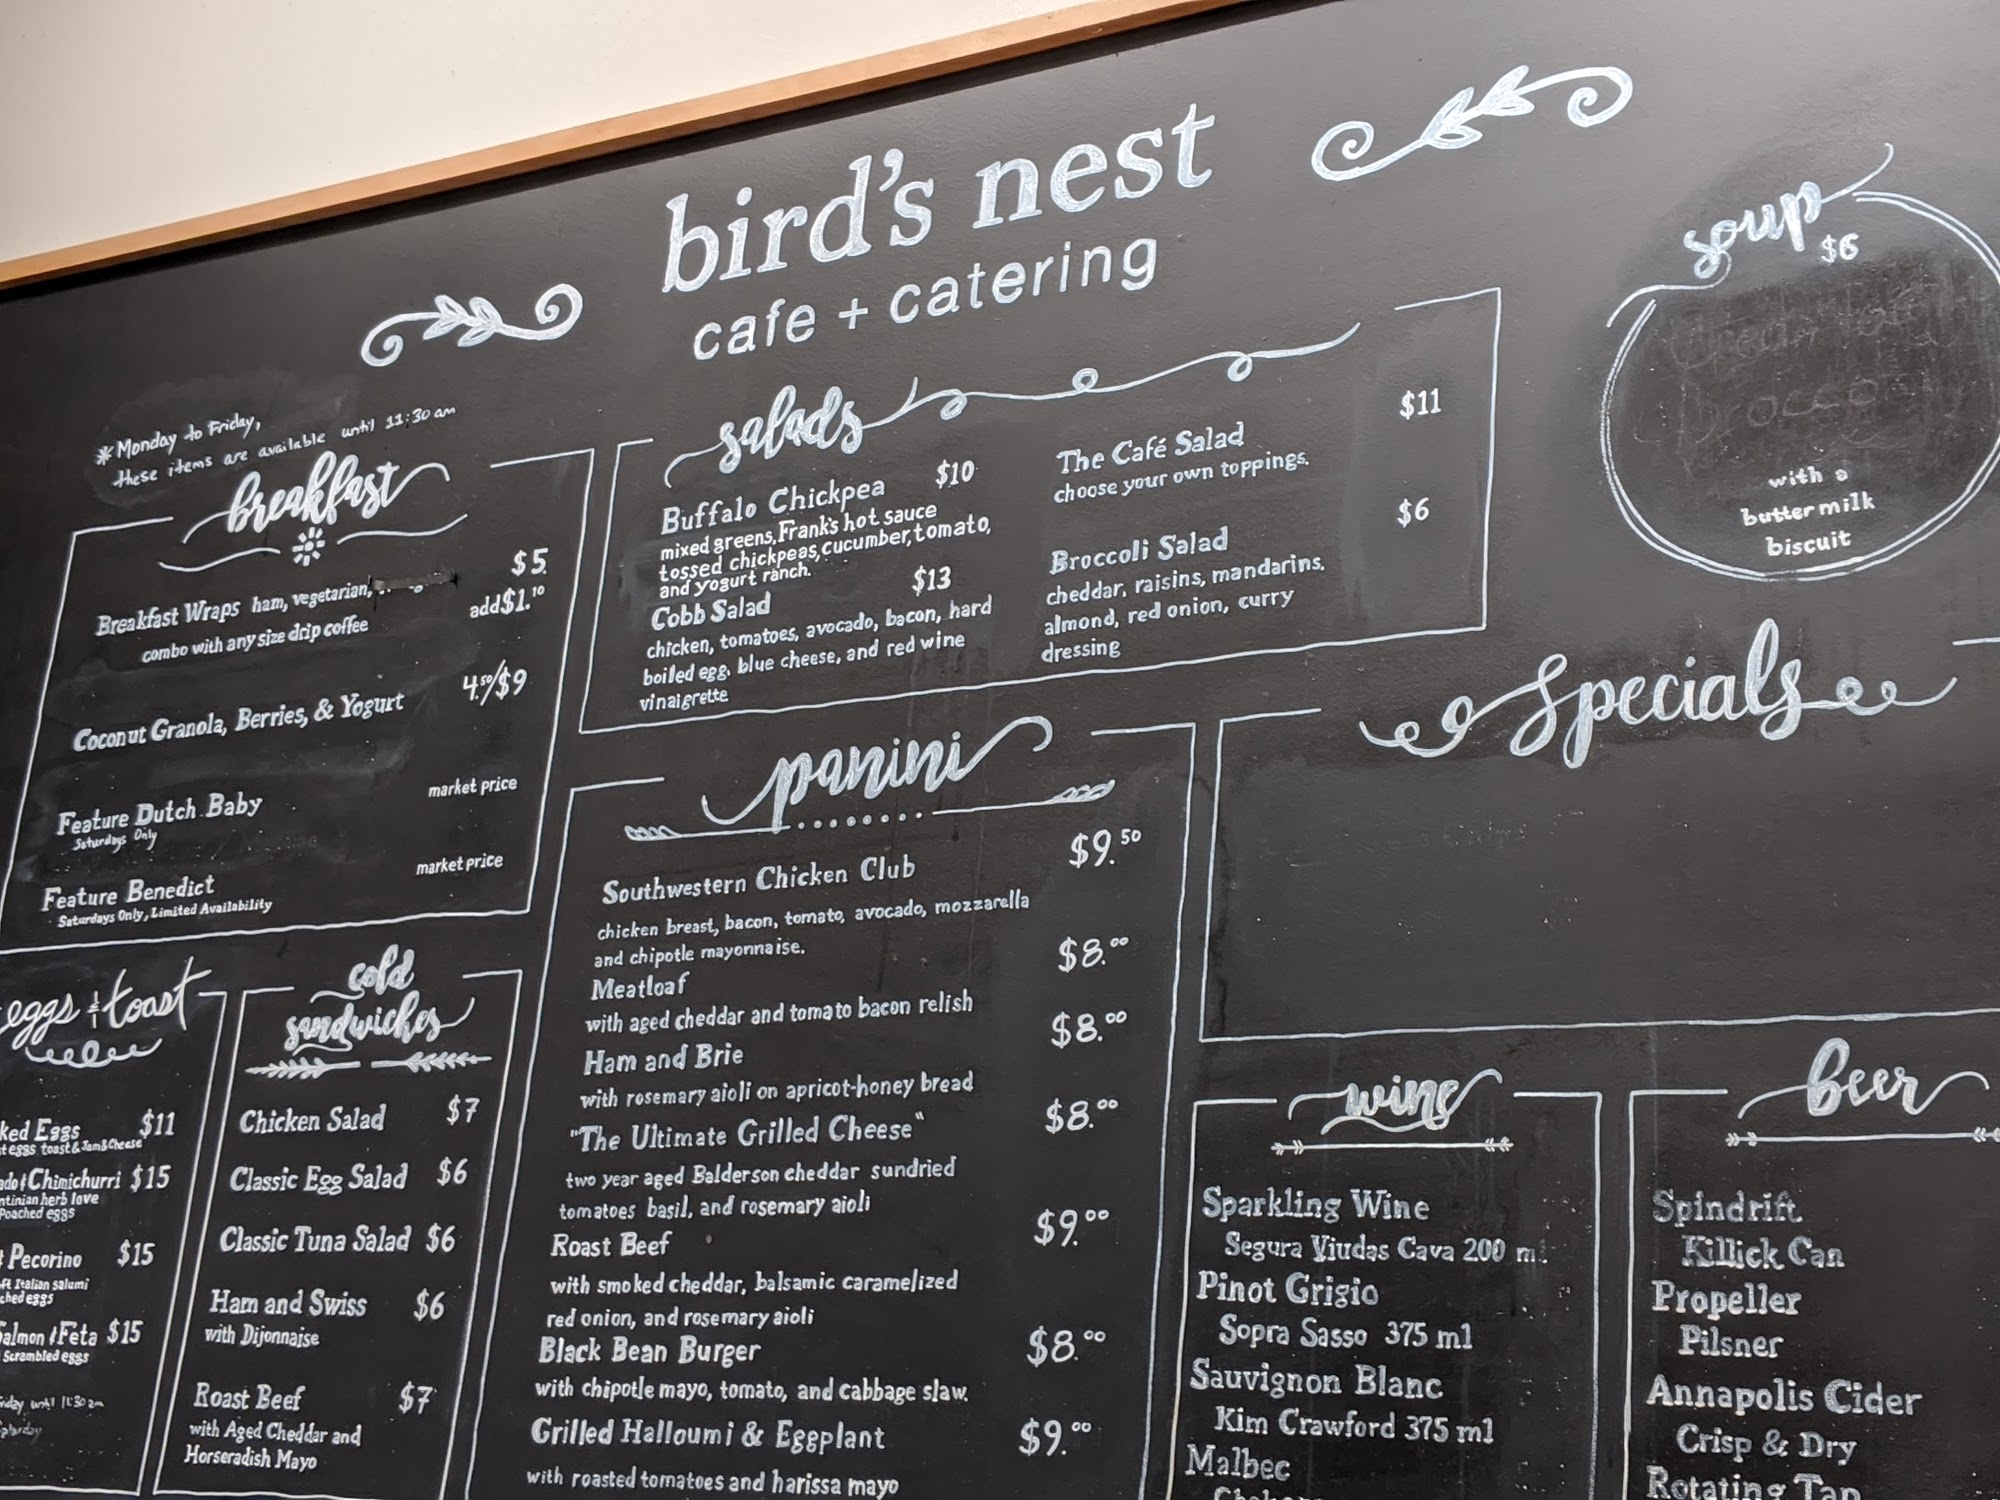 bird's nest
cafe + catering
*Monday to Friday,
these items are available until 11:30 am
breakfast
Breakfast Wraps ham, vegetarian, $5.
combo with any size drip coffee add $1.10
Coconut Granola, Berries, & Yogurt 4.50/$9
Feature Dutch Baby market price
Saturdays Only
Feature Benedict market price
Saturdays Only, Limited Availability
salads
Buffalo Chickpea $10
mixed greens, Frank's hot sauce
tossed chickpeas, cucumber, tomato,
and yogurt ranch.
Cobb Salad $13
chicken, tomatoes, avocado, bacon, hard
boiled egg, blue cheese, and red wine
vinaigrette
The Café Salad $11
choose your own toppings.
Broccoli Salad $6
cheddar, raisins, mandarins,
almond, red onion, curry
dressing
soup
$6
with a
buttermilk
biscuit
Specials
eggs & toast
ked Eggs $11
t eggs toast & Jam & Cheese
ado & Chimichurri $15
ntinian herb love
Poached eggs
Pecorino $15
ft Italian salumi
ched eggs
almon & Feta $15
Scrambled eggs
riday until 11:30 am
aturday
cold
sandwiches
Chicken Salad $7
Classic Egg Salad $6
Classic Tuna Salad $6
Ham and Swiss $6
with Dijonnaise
Roast Beef $7
with Aged Cheddar and
Horseradish Mayo
panini
Southwestern Chicken Club $9.50
chicken breast, bacon, tomato, avocado, mozzarella
and chipotle mayonnaise.
Meatloaf $8.00
with aged cheddar and tomato bacon relish
Ham and Brie $8.00
with rosemary aioli on apricot-honey bread
"The Ultimate Grilled Cheese" $8.00
two year aged Balderson cheddar sundried
tomatoes basil, and rosemary aioli
Roast Beef $9.00
with smoked cheddar, balsamic caramelized
red onion, and rosemary aioli
Black Bean Burger $8.00
with chipotle mayo, tomato, and cabbage slaw.
Grilled Halloumi & Eggplant $9.00
with roasted tomatoes and harissa mayo
wine
Sparkling Wine
Segura Viudas Cava 200 ml
Pinot Grigio
Sopra Sasso 375 ml
Sauvignon Blanc
Kim Crawford 375 ml
Malbec
beer
Spindrift
Killick Can
Propeller
Pilsner
Annapolis Cider
Crisp & Dry
Rotating Tap